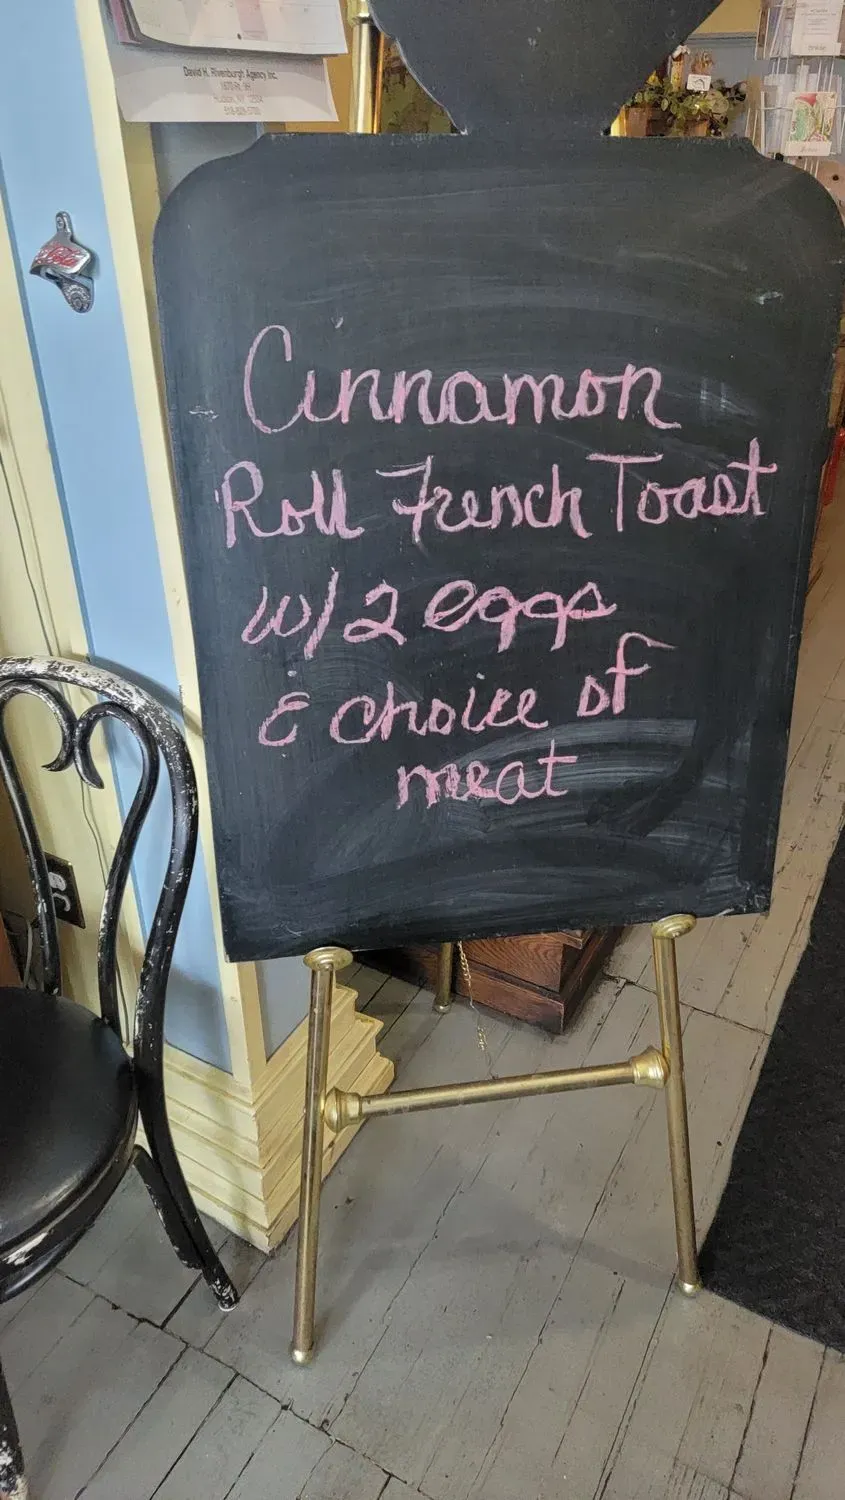 David H. Rivenburgh Agency Inc.
Cinnamon
Roll French Toast
w/2 eggs
& choice of
meat